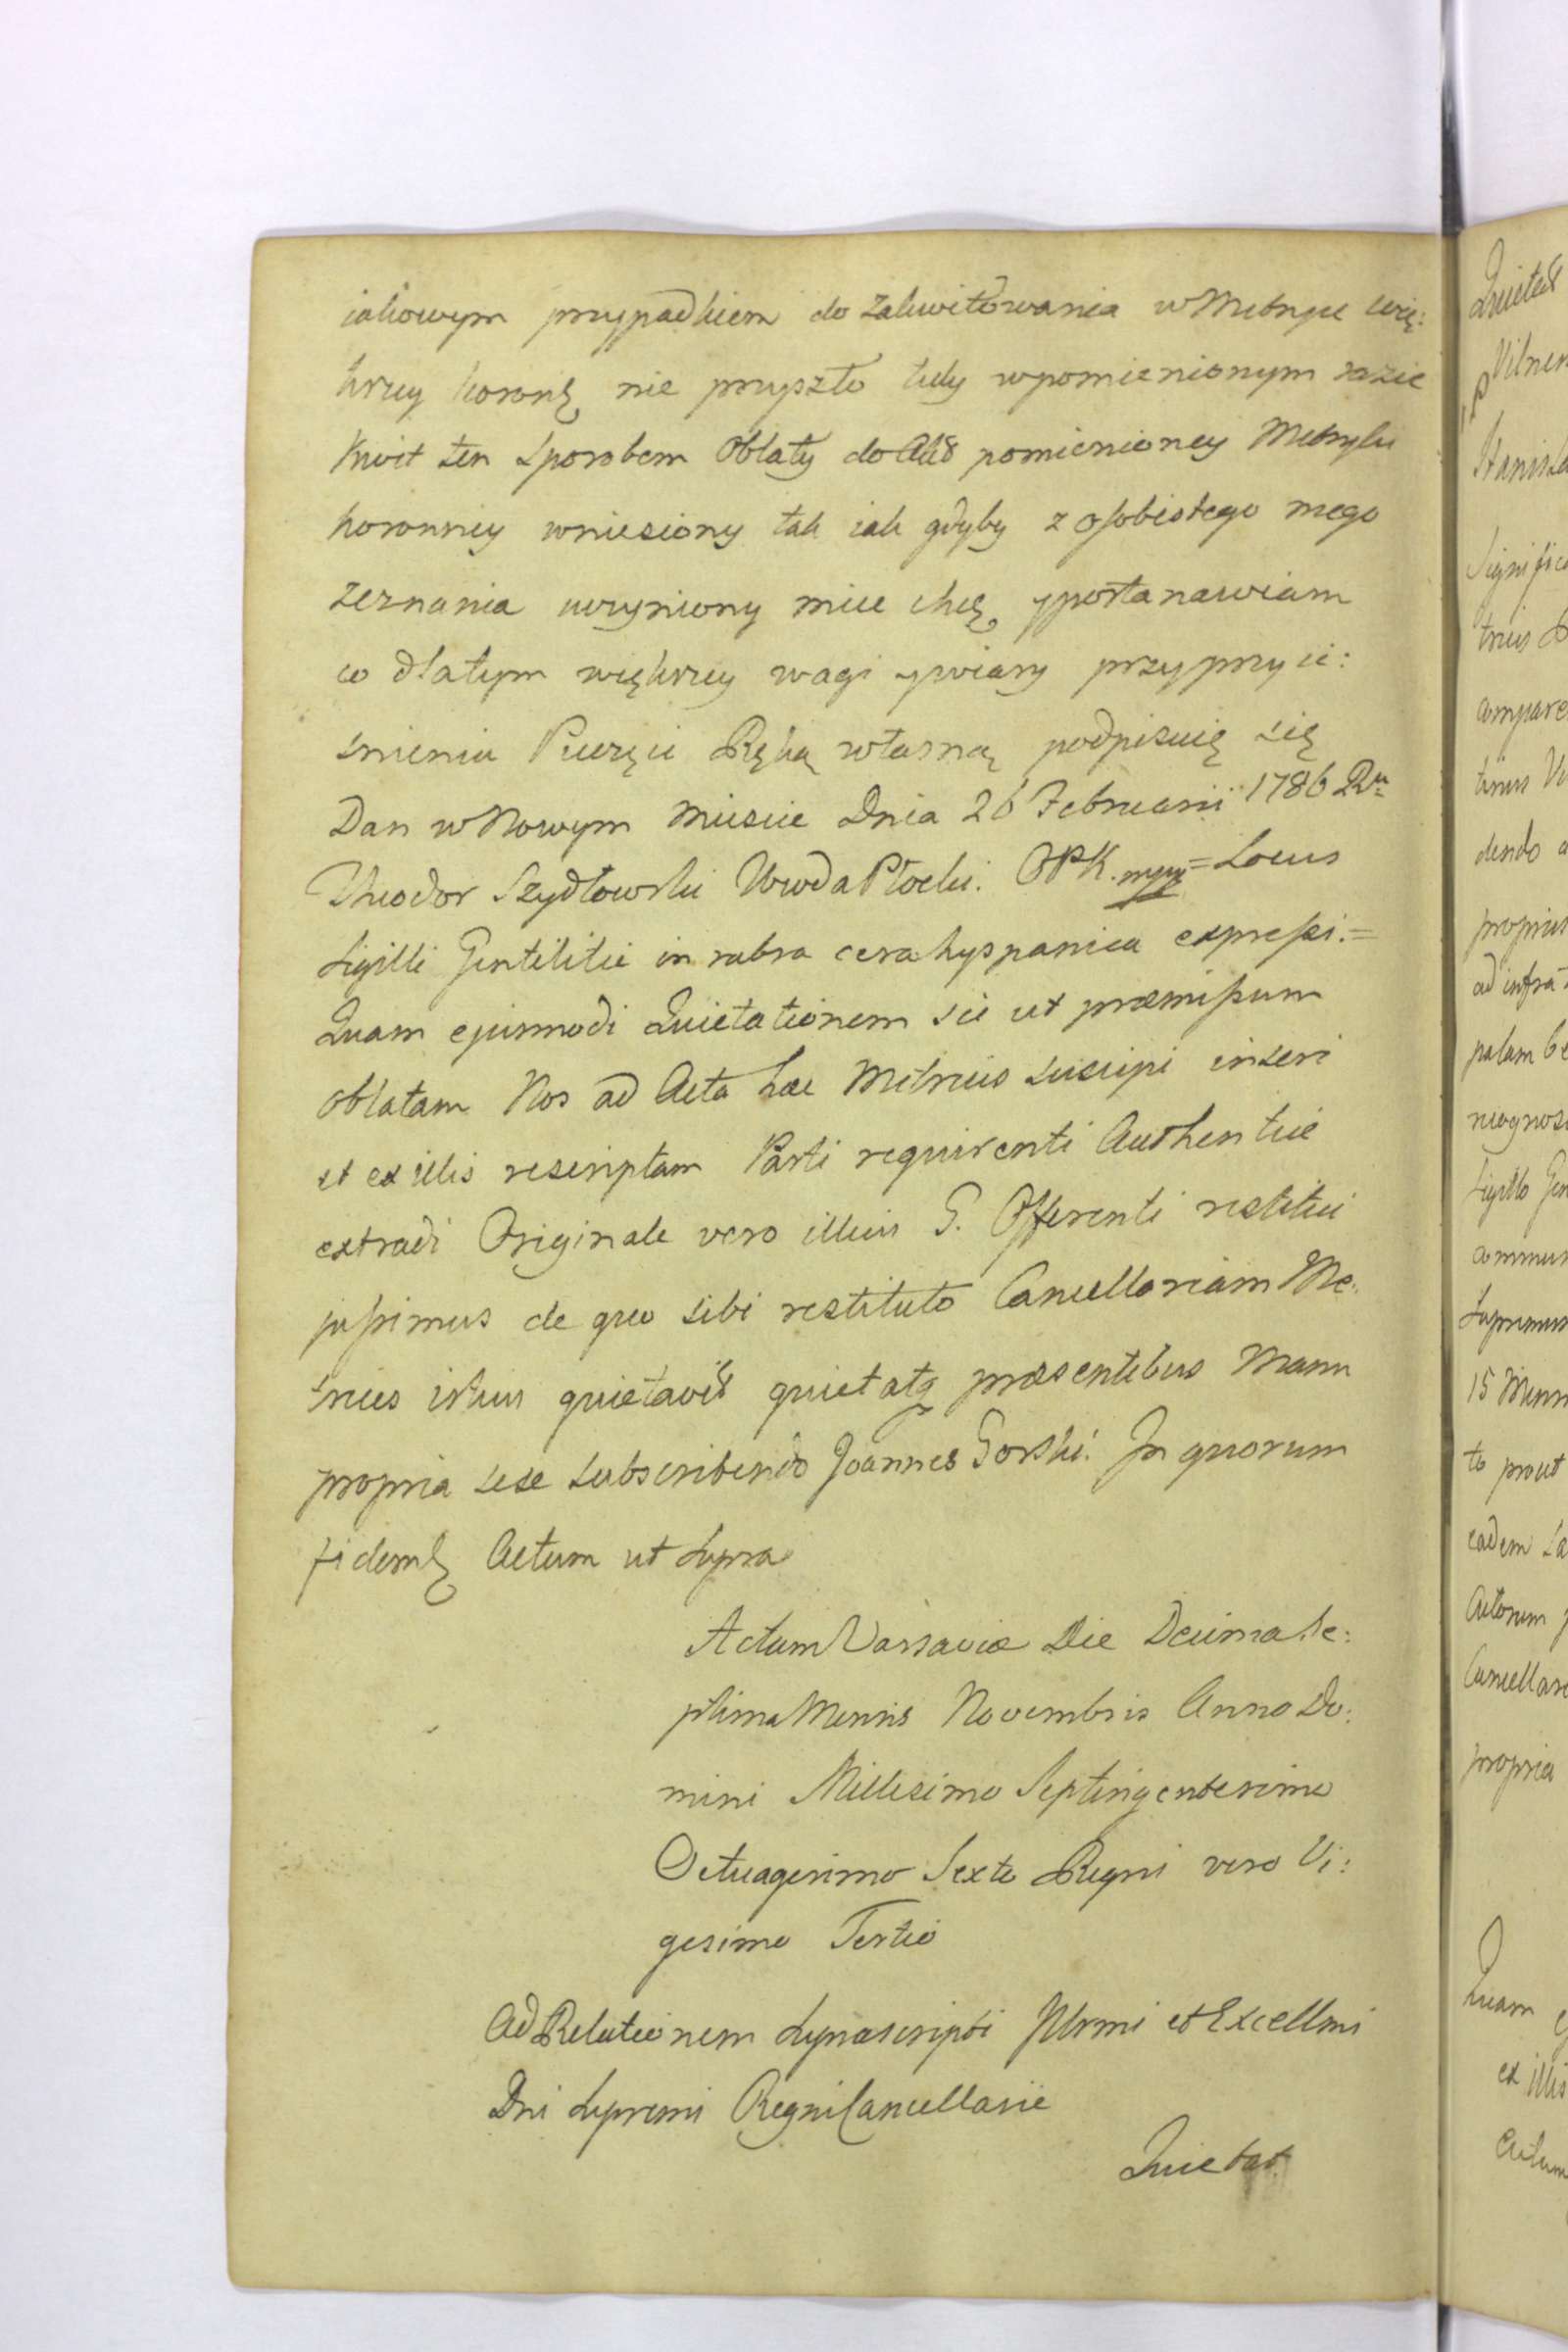 iakowym przypadkiem do zakwitowania w Metryce wię:
kszey koronę nie przyszło tedy wpomienionym razie
Kwit ten sposobem Oblaty do Akt pomienioney Metryki
koronney wniesiony tak iak gdyby z osobistego mego
zeznania uczyniony miec chcę ypostanawiam
co dlatym większey wagi ywiary przyprzyci:
śnieniu Pieczęci Ręką własną podpisuię się
Dan w Nowym Mieście Dnia 26 Februarii 1786 Ru
Theodor Szydłowski Wwda Płocki. OPK. mpp = Locus
Sigilli Gentilitii in rubra cera hyspanica expressi. =
Quam ejusmodi Quietationem sic ut præmissum
oblatam Nos ad Acta hæc Metrices suscipi inseri
et ex illis rescriptam Parti requirenti Authentice
extradi Originale vero illius G. Offerenti restitui
jussimus de quo sibi restituto Cancellariam Me:
trices istius quietavit quietatq præsentibus Manu
propria sese subscribendo Joannes Gorski. In quorum
fidemq Actum ut supra
Actum Varsaviæ Die Decima Se:
ptima Mensis Novembris Anno Do:
mini Millesimo Septingentesimo
Octuagesimo Sexto Regni vero Vi:
gesimo Tertio
Ad Relationem suprascripti Illrmi et Excellmi
Dni supremi Regni Cancellarii
Quietat.
Quietat
Vilnen
Stanisla
Significa
trius
compare
tinus
dendo a
proprius
ad infra
palam
recognos
Sigillo Gen
commun
Supremus
15 Mens
to prout
eadem
Actorum
Cancellar
propria
Quam
ex illis
Actum